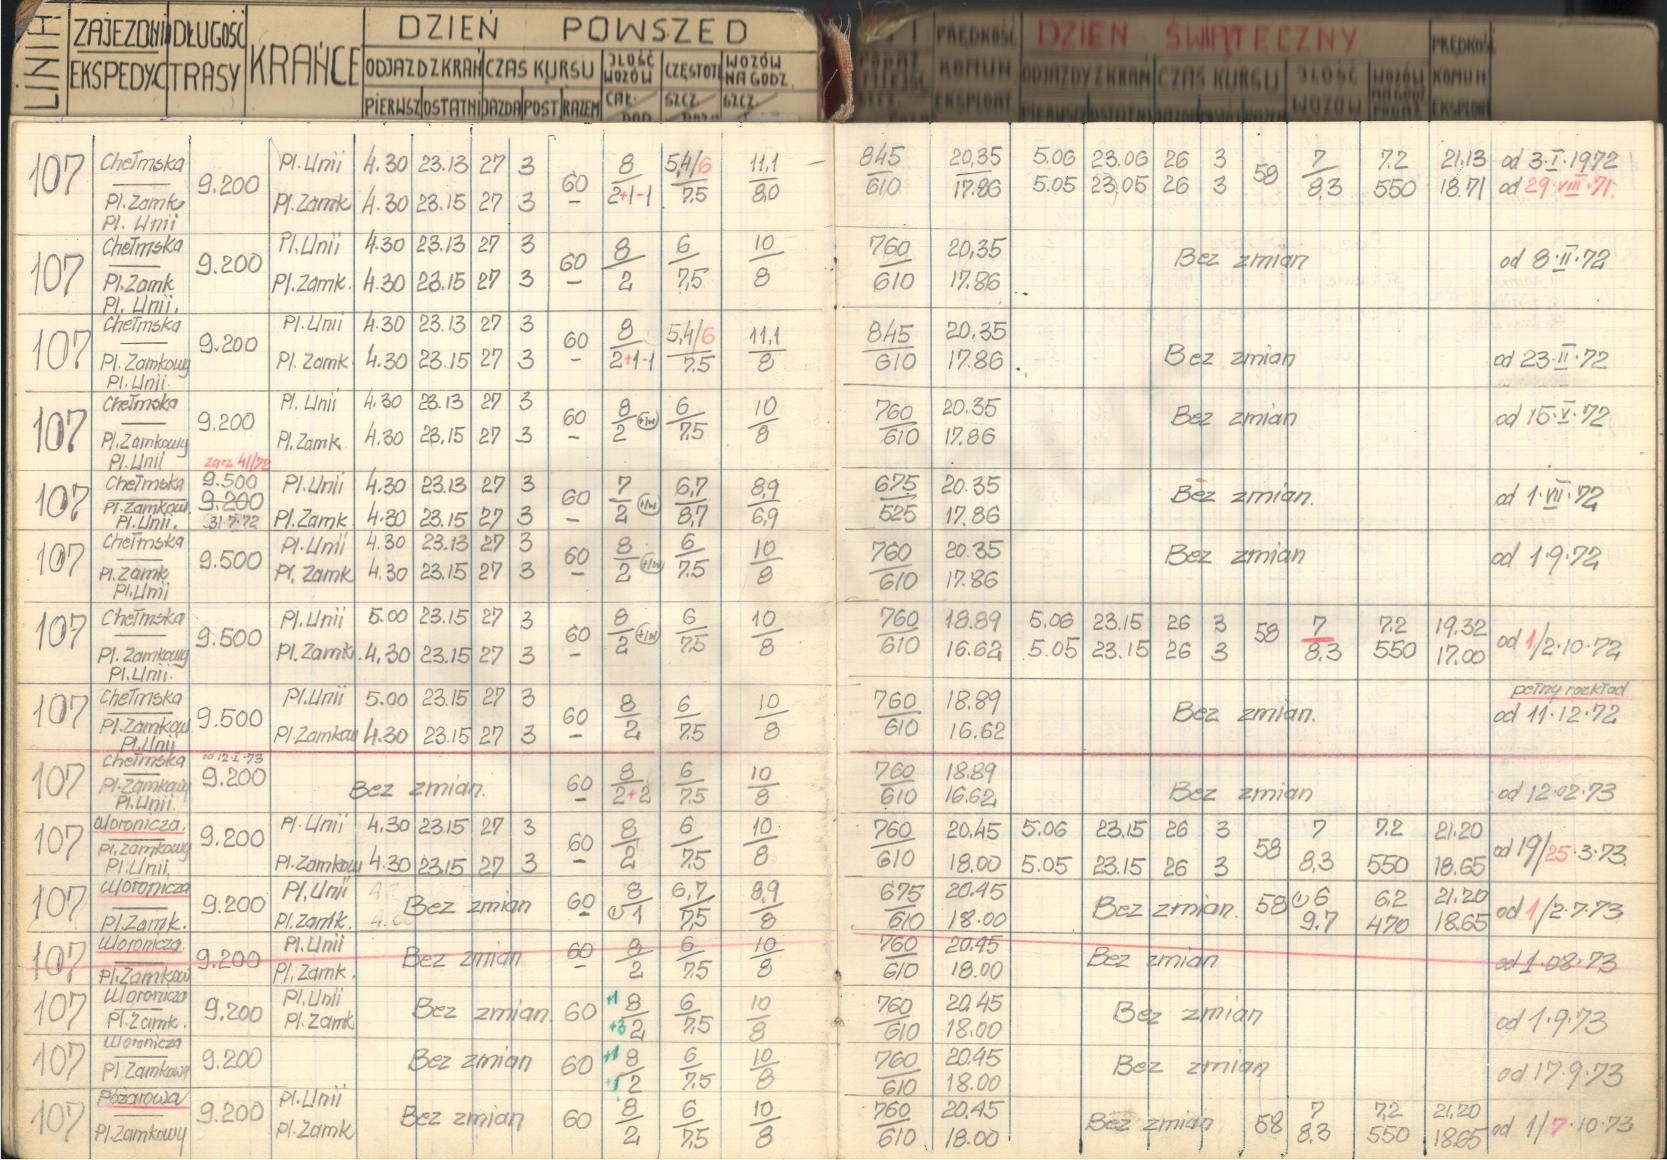 LINIA ZAJEZDNI EKSPEDYC DŁUGOŚĆ TRASY KRAŃCE DZIEŃ POWSZED DZIEŃ ŚWIĄTECZNY
ODJAZD Z KRAŃ CZAS KURSU ILOŚĆ WOZÓW CZĘSTOTL WOZÓW NA GODZ. PRĘDKOŚĆ KOMUN EKSPLOAT ODJAZDY Z KRAŃ CZAS KURSU ILOŚĆ WOZÓW WOZÓW NA GODZ PRĘDKOŚ KOMUN EKSPLOAT
PIERWSZ OSTATNI JAZDA POST RAZEM CAŁ. SZCZ. SZCZ.
107 Chełmska 9.200 Pl. Unii 4.30 23.13 27 3 60 8 5,4/6 11,1 845 20,35 5.06 23.06 26 3 58 7 7.2 21.13 od 3·I·1972
Pl. Zamk Pl. Zamk 4.30 23.15 27 3 – 2+1-1 7,5 8,0 610 17.86 5.05 23,05 26 3 8,3 550 18.71 od 29·VIII·71.
Pl. Unii
107 Chełmska 9.200 Pl. Unii 4.30 23.13 27 3 60 8 6 10 760 20,35 Bez zmian od 8·II·72
Pl. Zamk Pl. Zamk. 4.30 23.15 27 3 – 2 7,5 8 610 17.86
Pl. Unii.
107 Chełmska 9.200 Pl. Unii 4.30 23.13 27 3 60 8 5,4/6 11,1 845 20.35 Bez zmian od 23·II·72
Pl. Zamkowy Pl. Zamk. 4.30 23.15 27 3 – 2+1-1 7.5 8 610 17.86
Pl. Unii.
107 Chełmska 9.200 Pl. Unii 4.30 23.13 27 3 60 8 6 10 760 20.35 Bez zmian od 15·V·72
Pl. Zamkowy Pl. Zamk. 4.30 23,15 27 3 – 2 +1w 7.5 8 610 17.86
Pl. Unii zarz 41/72
107 Chełmska 9.500 Pl. Unii 4.30 23.13 27 3 60 7 6,7 8,9 675 20.35 Bez zmian. od 1·VII·72
Pl. Zamkow. 9.200 Pl. Zamk. 4.30 23.15 27 3 – 2 +1w 8,7 6,9 525 17.86
Pl. Unii. 31·7·72
107 Chełmska 9.500 Pl. Unii 4.30 23.13 27 3 60 8 6 10 760 20.35 Bez zmian od 1·9·72
Pl. Zamk Pl. Zamk 4.30 23.15 27 3 – 2 +1w 7.5 8 610 17.86
Pl. Unii
107 Chełmska 9.500 Pl. Unii 5.00 23.15 27 3 60 8 6 10 760 18.89 5.06 23.15 26 3 58 7 7.2 19.32 od 1/2·10·72
Pl. Zamkowy Pl. Zamk. 4.30 23.15 27 3 – 2 +1w 7.5 8 610 16.62 5.05 23.15 26 3 8,3 550 17.00
Pl. Unii.
107 Chełmska 9.500 Pl. Unii 5.00 23.15 27 3 60 8 6 10 760 18.89 Bez zmian. pełny rozkład
Pl. Zamkow Pl. Zamkow 4.30 23.15 27 3 – 2 7.5 8 610 16.62 od 11·12·72
Pl. Unii
107 Chełmska od 12·I·73 9.200 Bez zmian. 60 8 6 10 760 18.89 Bez zmian od 12·02·73
Pl. Zamkowy – 2+2 7.5 8 610 16.62
Pl. Unii.
107 Woronicza. 9.200 Pl. Unii 4.30 23.15 27 3 60 8 6 10 760 20.45 5.06 23.15 26 3 58 7 7.2 21.20 od 19/25·3·73.
Pl. Zamkowy Pl. Zamkowy 4.30 23.15 27 3 – 2 7.5 8 610 18.00 5.05 23.15 26 3 8,3 550 18.65
Pl. Unii.
107 Woronicza 9.200 Pl. Unii Bez zmian 60 8 6,7 8,9 675 20.45 Bez zmian. 58 6 6.2 21.20 od 1/2·7·73
Pl. Zamk. Pl. Zamk. – 1 7,5 8 610 18.00 9.7 470 18.65
107 Woronicza. 9.200 Pl. Unii Bez zmian 60 8 6 10 760 20.45 Bez zmian od 1·08·73
Pl. Zamkow Pl. Zamk. – 2 7.5 8 610 18.00
107 Woronicza 9.200 Pl. Unii Bez zmian. 60 +1 8 6 10 760 20.45 Bez zmian od 1·9·73
Pl. Zamk. Pl. Zamk +3 2 7.5 8 610 18.00
107 Woronicza 9.200 Bez zmian 60 +1 8 6 10 760 20.45 Bez zmian od 17·9·73
Pl. Zamkow +1 2 7.5 8 610 18.00
107 Pożarowa 9.200 Pl. Unii Bez zmian 60 8 6 10 760 20.45 Bez zmian 58 7 7,2 21.20 od 1/7·10·73
Pl. Zamkowy Pl. Zamk 2 7,5 8 610 18.00 8.3 550 18.65